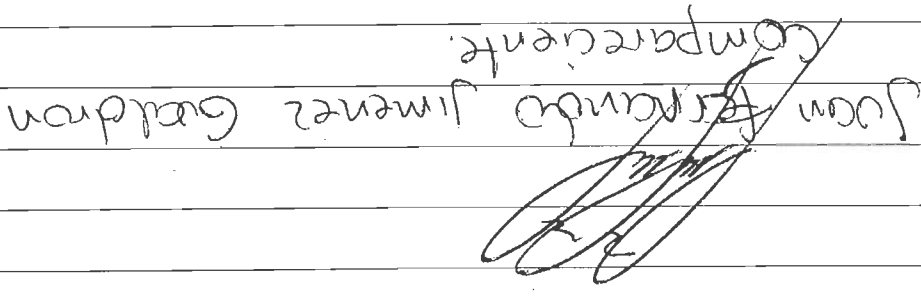 Juan Fernando Jimenez Gualdron
Compareciente.